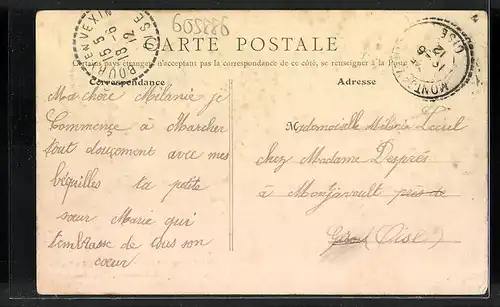 833209
CARTE POSTALE
Certains pays étrangers n'acceptant pas la correspondance de ce côté, se renseigner à la Poste
Correspondance
Adresse
Ma chère Mélanie je
Commence à Marcher
tout douçement avec mes
béquilles ta petite
sœur Marie qui
t'embrasse de tous son
cœur
Mademoiselle Mélanie
chez Madame Després
à Montjavoult près de
(Oise)
BOURY EN VEXIN
OISE
OISE